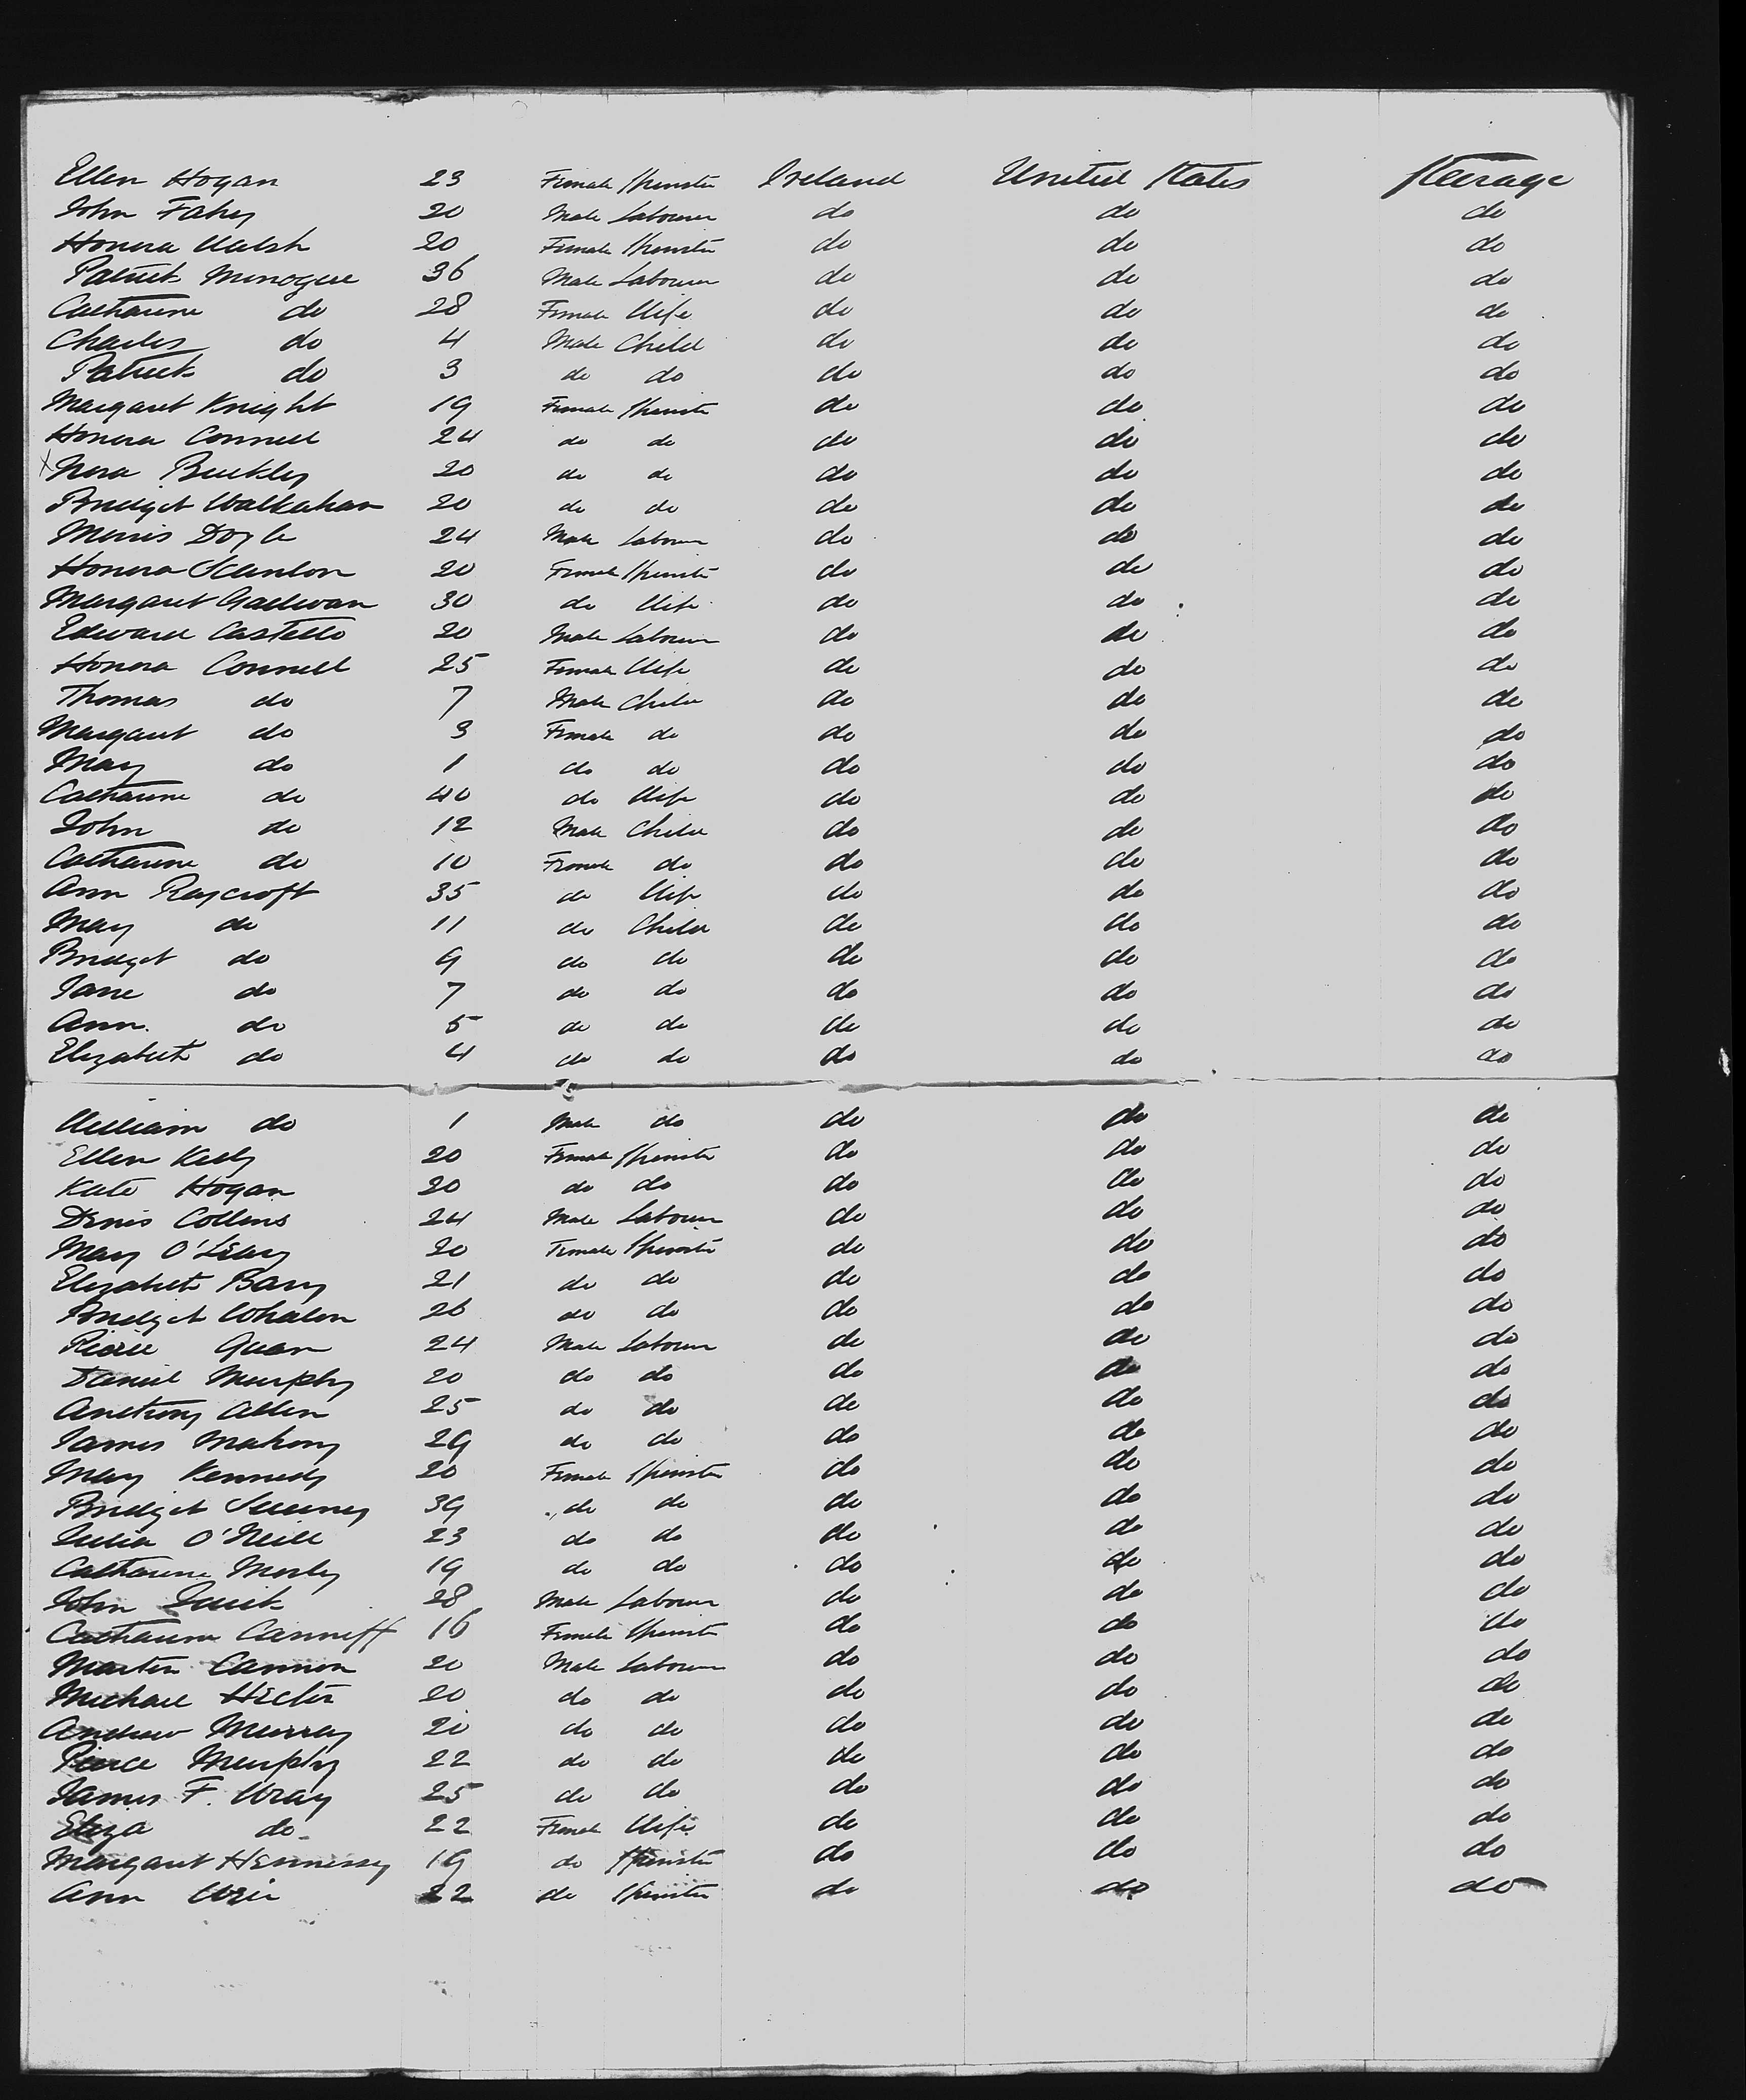 Ellen Hogan 23 Female Spinster Ireland United States Steerage
John Fahey 20 Male Labourer do do do
Honora Walsh 20 Female Spinster do do do
Patrick Minogue 36 Male Labourer do do do
Catharine do 28 Female Wife do do do
Charles do 4 Male Child do do do
Patrick do 3 do do do do do
Margaret Knight 19 Female Spinster do do do
Honora Connell 24 do do do do do
x Nora Buckley 20 do do do do do
Bridget Wallahan 20 do do do do do
Morris Doyle 24 Male Labourer do do do
Honora Scanlon 20 Female Spinster do do do
Margaret 30 do Wife do do do
Edward Castello 20 Male Labourer do do do
Honora Connell 25 Female Wife do do do
Thomas do 7 Male Child do do do
Margaret do 3 Female do do do do
Mary do 1 do do do do do
Catharine do 40 do Wife do do do
John do 12 Male Child do do do
Catharine do 10 Female do do do do
Ann Raycroft 35 do Wife do do do
Mary do 11 do Child do do do
Bridget do 9 do do do do do
Jane do 7 do do do do do
Ann. do 5 do do do do do
Elizabeth do 4 do do do do do
William do 1 Male do do do do
Ellen Kelly 20 Female Spinster do do do
Kate Hogan 20 do do do do do
Denis Collins 24 Male Labourer do do do
Mary O'Leary 20 Female Spinster do do do
Elizabeth Barry 21 do do do do do
Bridget Whalen 26 do do do do do
Pierce Quan 24 Male Labourer do do do
Daniel Murphy 20 do do do do do
Anthony Allen 25 do do do do do
James Mahony 29 do do do do do
Mary Kennedy 20 Female Spinster do do do
Bridget Sweeney 39 do do do do do
Julia O'Neill 23 do do do do do
Catharine Morley 19 do do do do do
John Quirk 28 Male Labourer do do do
Catharine Canniff 16 Female Spinster do do do
Martin Cannon 20 Male Labourer do do do
Michael Hector 20 do do do do do
Andrew Murray 20 do do do do do
Pierce Murphy 22 do do do do do
James F. Wray 25 do do do do do
Eliza do 22 Female Wife do do do
Margaret Hennessy 19 do Spinster do do do
Ann Weir 22 do Spinster do do do